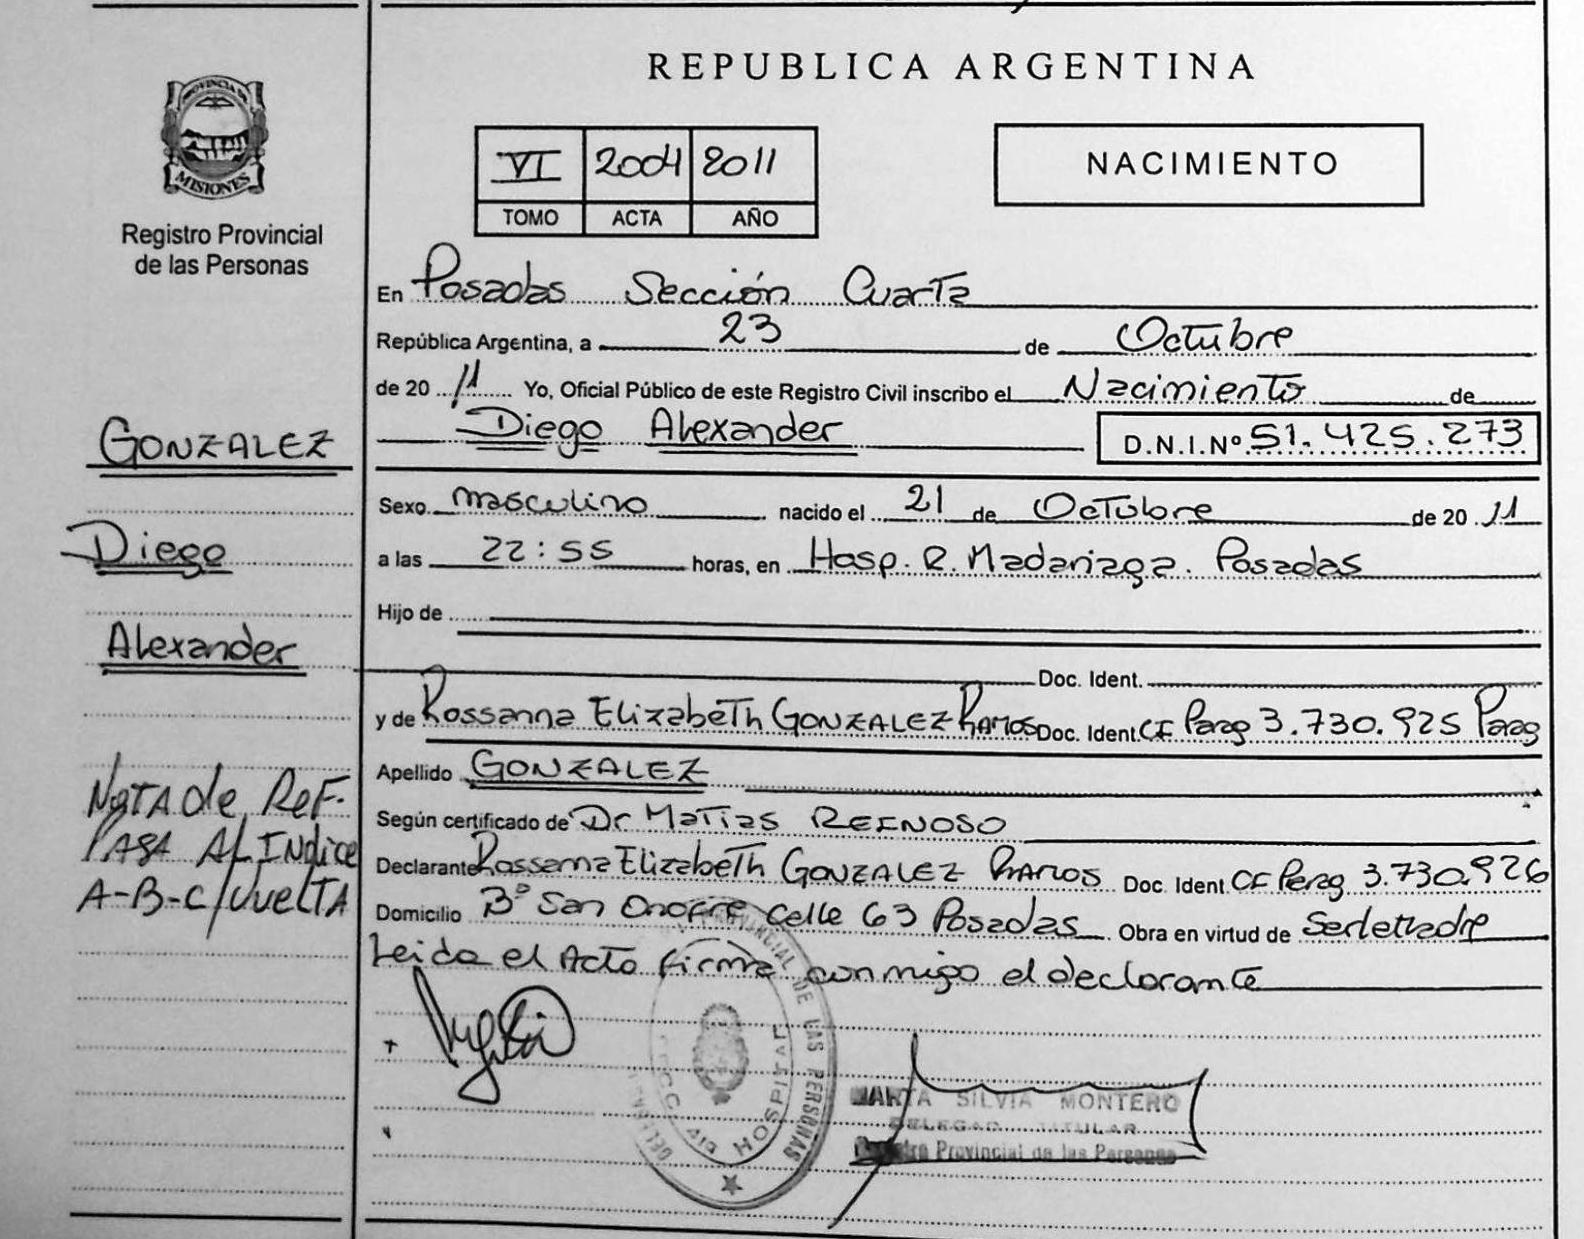 REPUBLICA ARGENTINA
PROVINCIA DE
MISIONES
Registro Provincial
de las Personas
VI 2004 2011
TOMO ACTA AÑO
NACIMIENTO
En Posadas Sección Cuarta
República Argentina, a 23 de Octubre
de 20 11 Yo, Oficial Público de este Registro Civil inscribo el Nacimiento de
Diego Alexander D.N.I.Nº 51.425.273
Sexo masculino nacido el 21 de Octubre de 20 11
a las 22:55 horas, en Hosp. R. Madariaga. Posadas
Hijo de
Doc. Ident.
y de Rossanna Elizabeth GONZALEZ RAMOS Doc. Ident. CI Parag 3.730.925 Parag
Apellido GONZALEZ
Según certificado de Dr Matias REINOSO
Declarante Rossanna Elizabeth GONZALEZ RAMOS Doc. Ident CI Parag 3.730.926
Domicilio Bº San Onofre Calle 63 Posadas Obra en virtud de
Leida el Acto firma con migo el declarante
GONZALEZ
Diego
Alexander
NOTA de REF.
PASA AL INdice
A-B-C/VueLTA
PROVINCIAL DE LAS PERSONAS
HOSPITAL
MARTA SILVIA MONTERO
DELEGADA TITULAR
Registro Provincial de las Personas